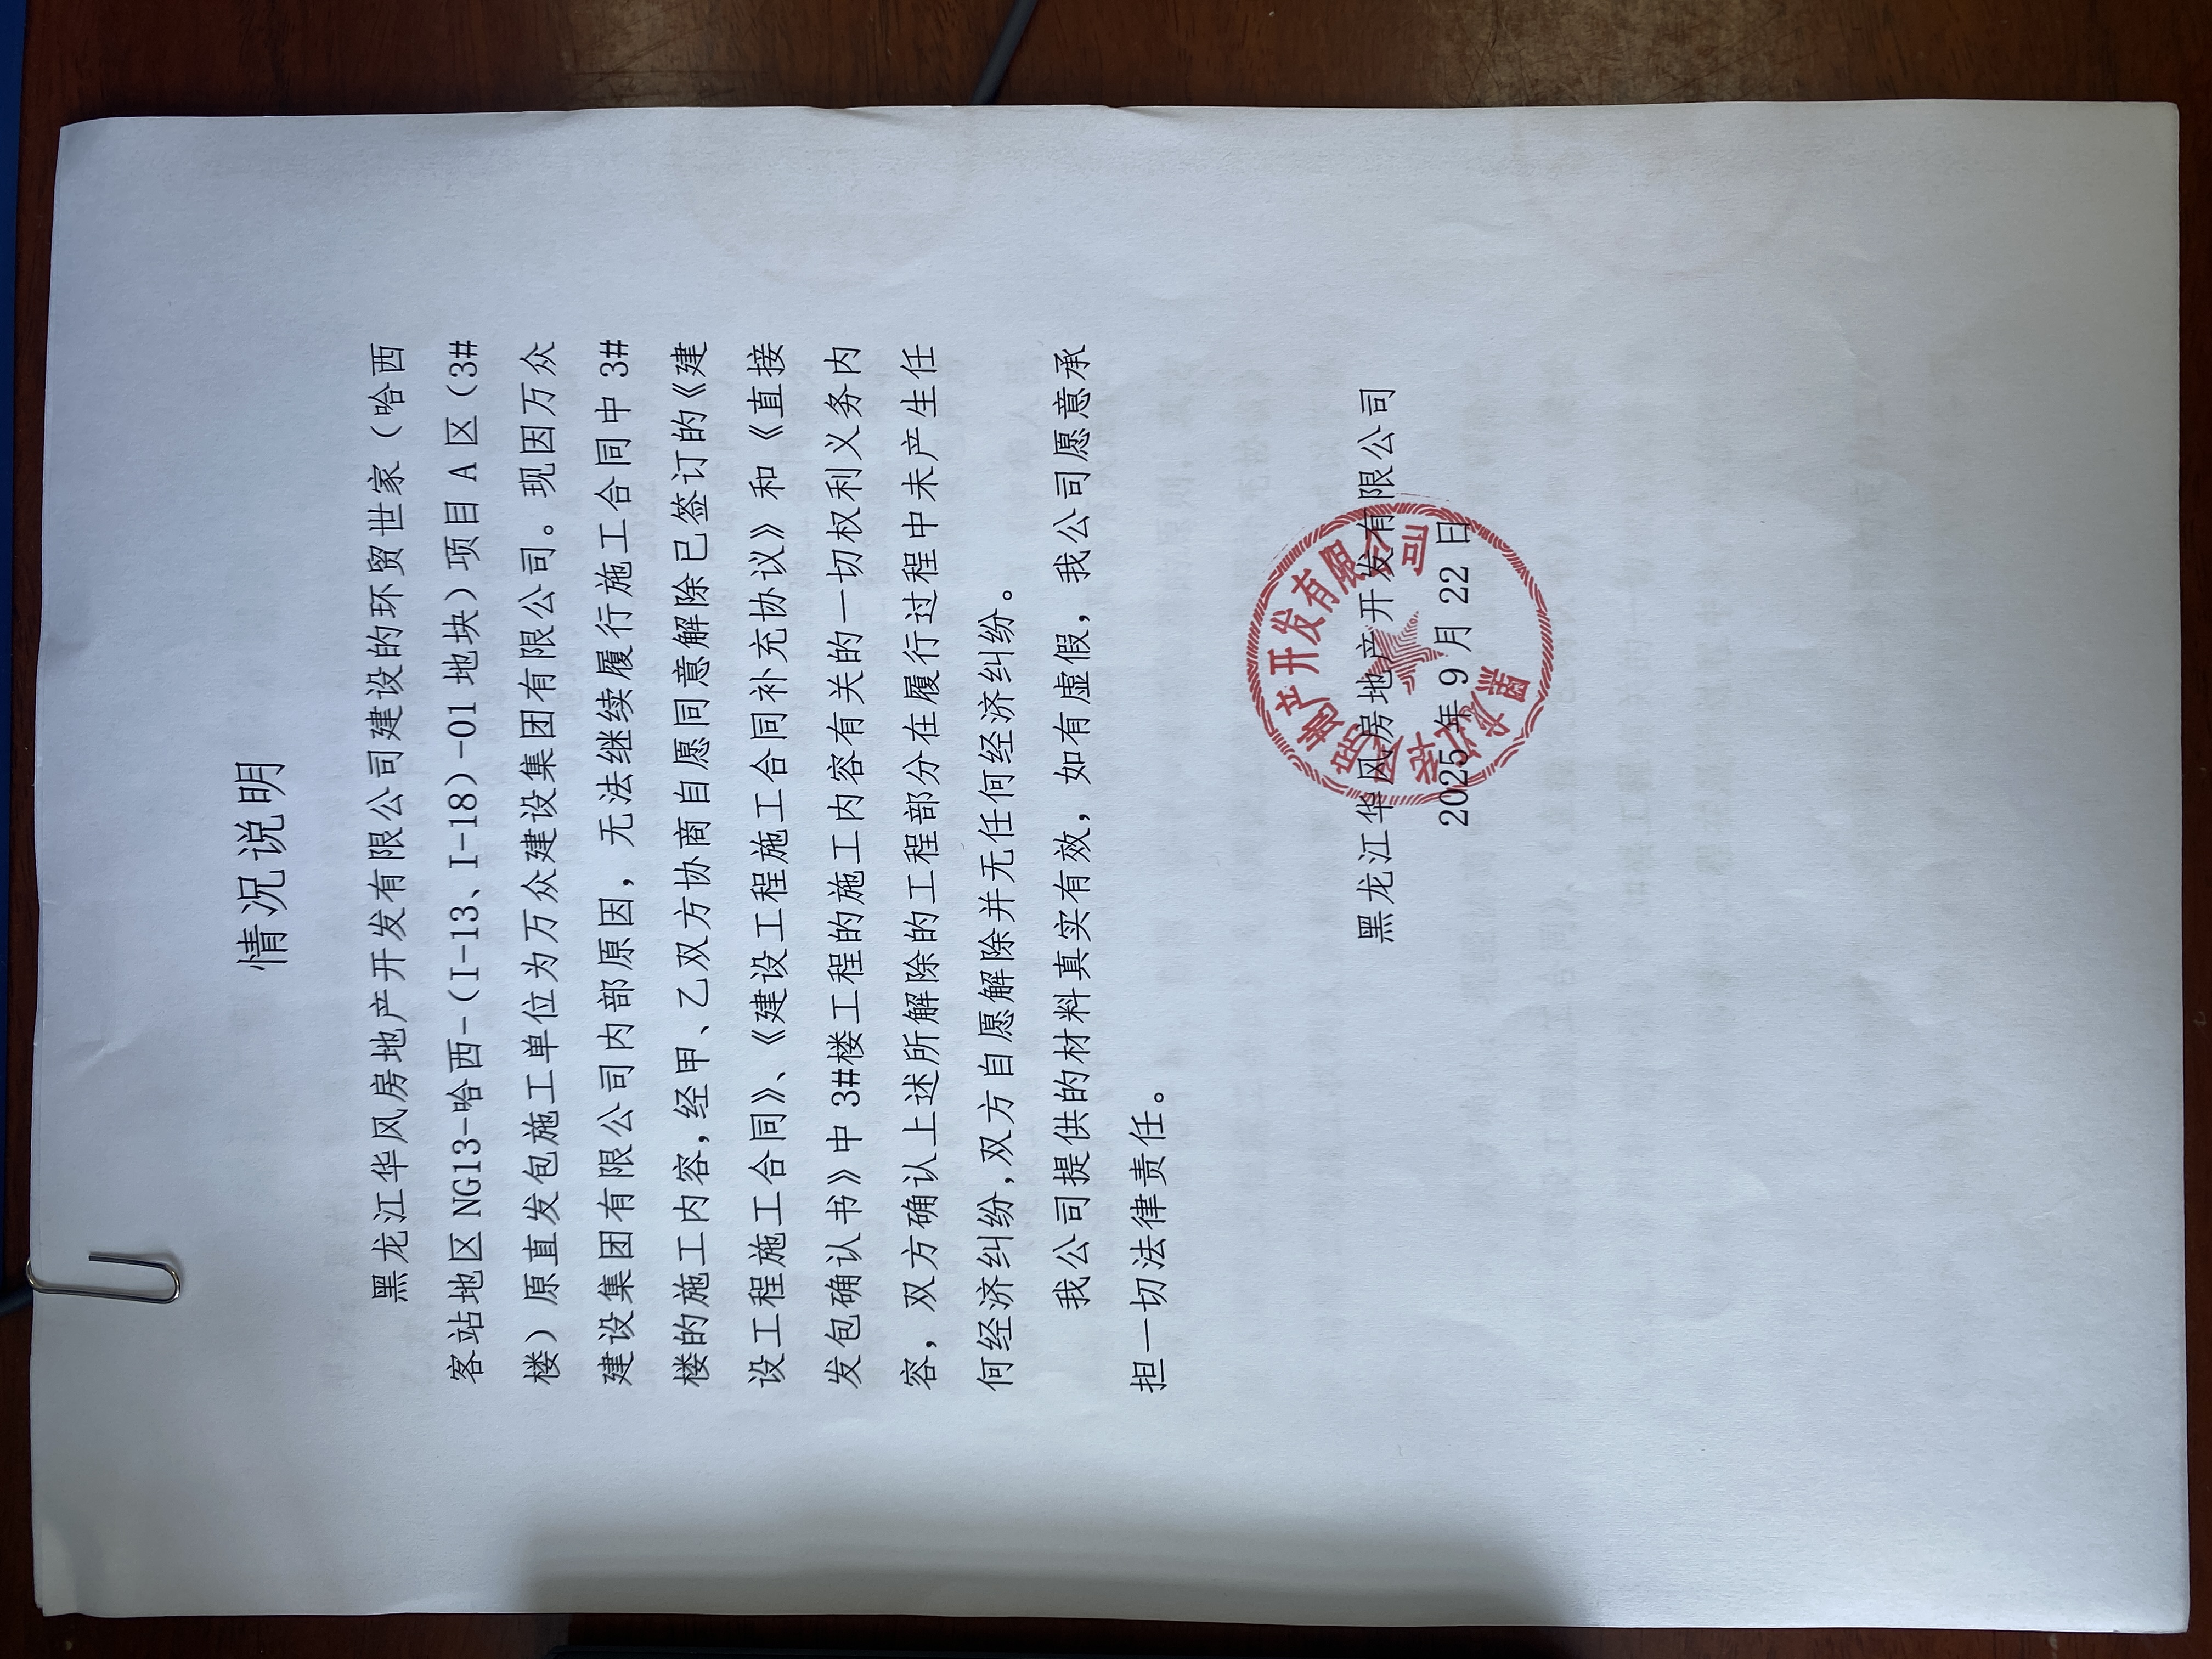 情况说明
黑龙江华风房地产开发有限公司建设的环贸世家（哈西
客站地区 NG13-哈西-（I-13、I-18）-01 地块）项目 A 区（3#
楼）原直发包施工单位为万众建设集团有限公司。现因万众
建设集团有限公司内部原因，无法继续履行施工合同中 3#
楼的施工内容，经甲、乙双方协商自愿同意解除已签订的《建
设工程施工合同》、《建设工程施工合同补充协议》和《直接
发包确认书》中 3#楼工程的施工内容有关的一切权利义务内
容，双方确认上述所解除的工程部分在履行过程中未产生任
何经济纠纷，双方自愿解除并无任何经济纠纷。
我公司提供的材料真实有效，如有虚假，我公司愿意承
担一切法律责任。
黑龙江华风房地产开发有限公司
2025年 9月 22 日
黑龙江华风房地产开发有限公司